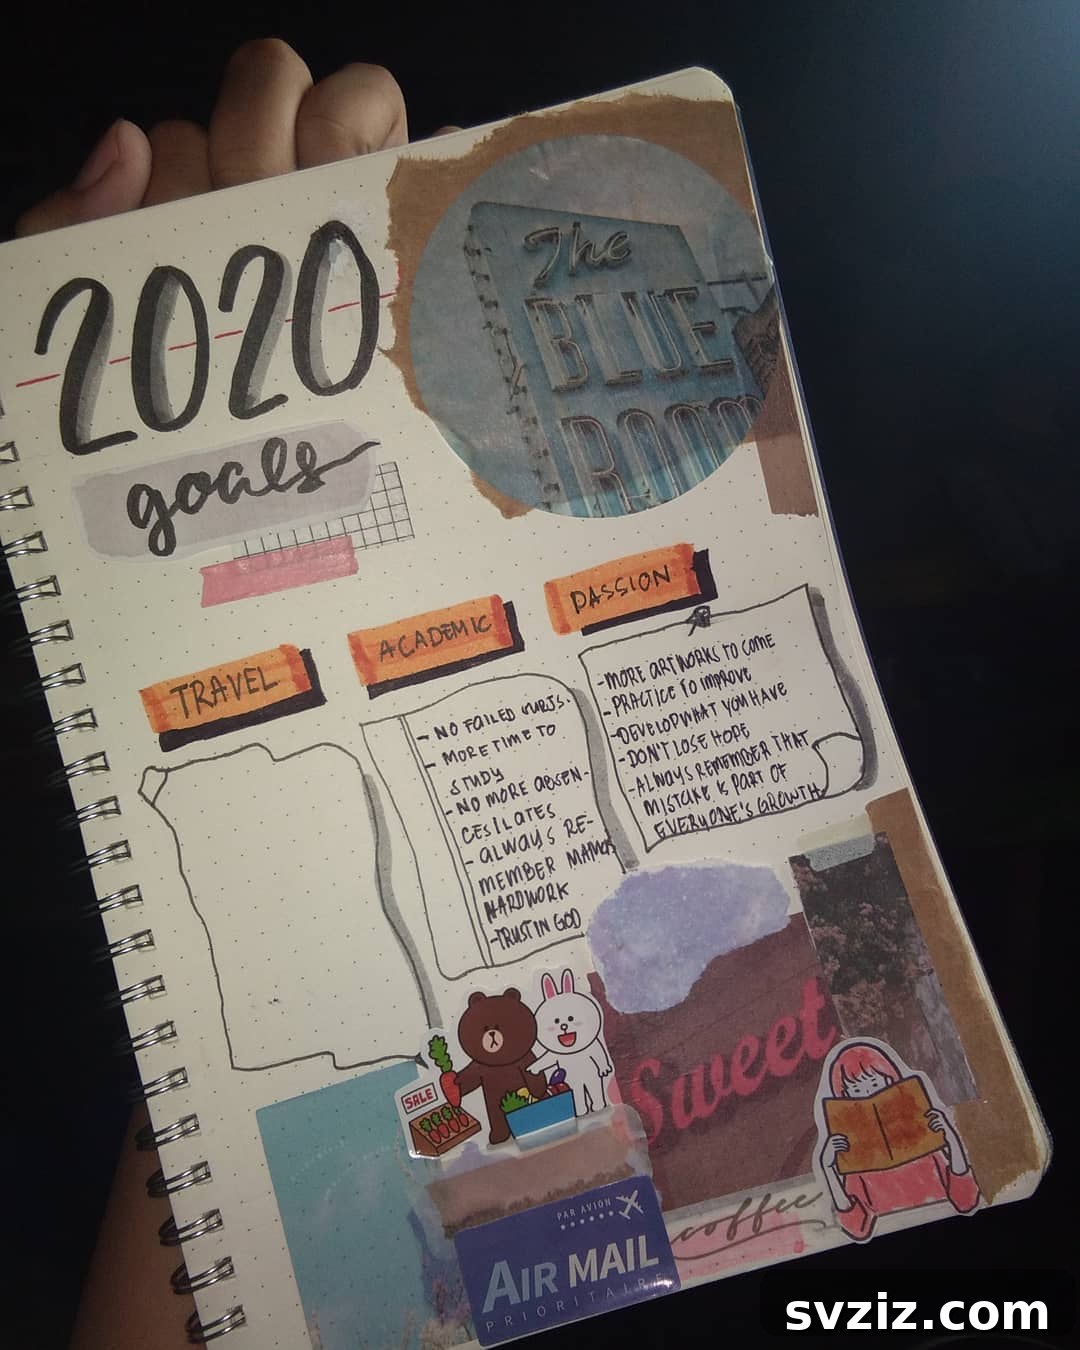 2020
goals
The
BLUE
ROOM
TRAVEL
ACADEMIC
PASSION
- NO FAILED SUBJS.
- MORE TIME TO
STUDY
- NO MORE ABSEN-
CES/LATES
- ALWAYS RE-
MEMBER MAMA'S
HARDWORK
- TRUST IN GOD
- MORE ARTWORKS TO COME
- PRACTICE TO IMPROVE
- DEVELOP WHAT YOU HAVE
- DON'T LOSE HOPE
- ALWAYS REMEMBER THAT
MISTAKE IS PART OF
EVERYONE'S GROWTH
SALE
Sweet
coffee
PAR AVION
AIR MAIL
PRIORITAIRE
svziz.com